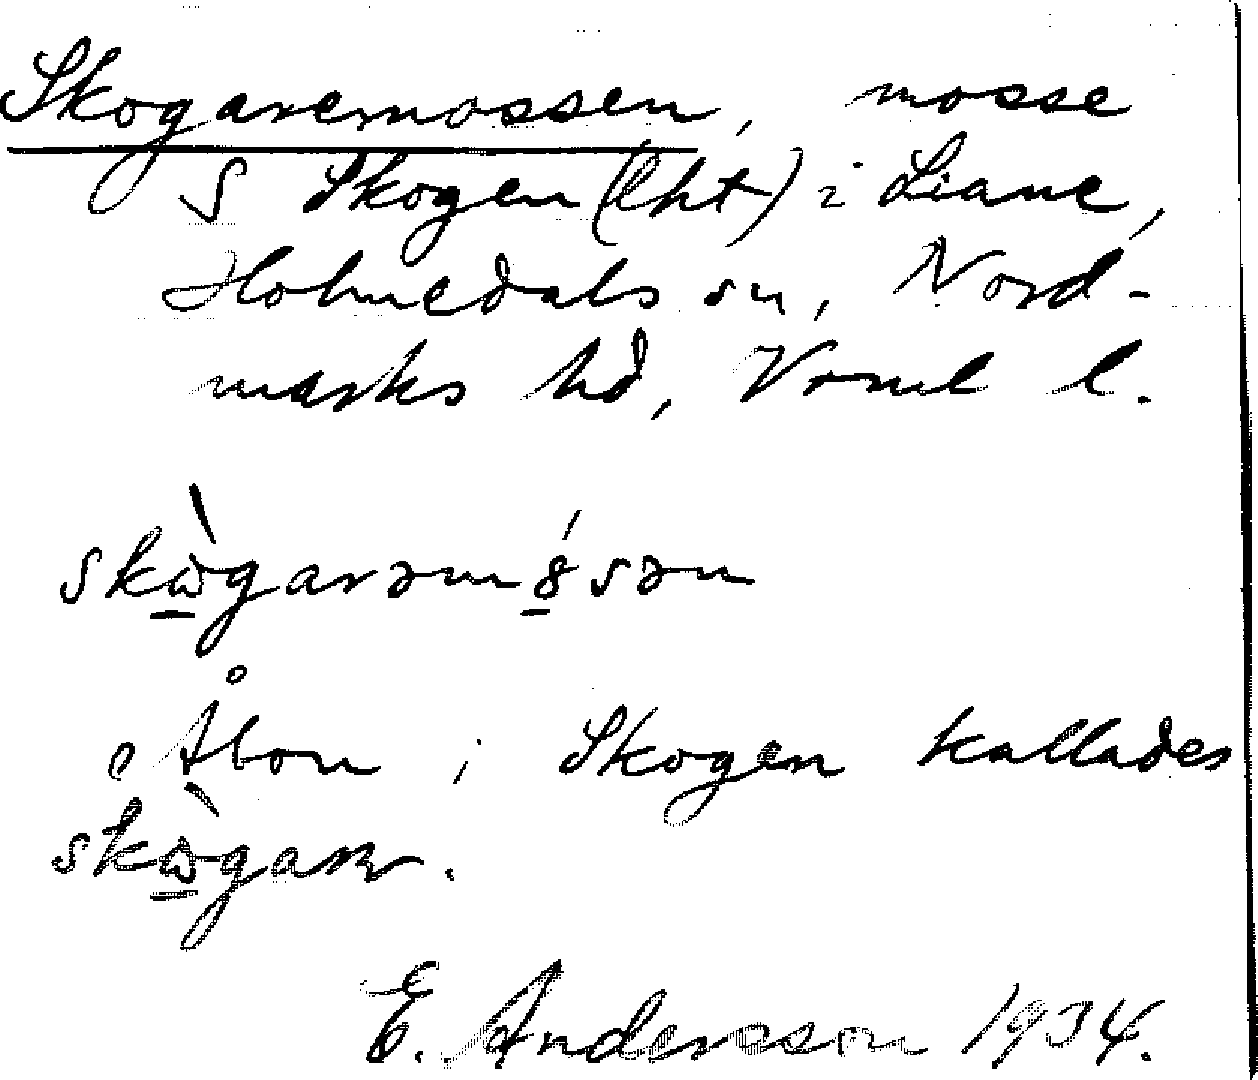 Skogaremossen, mosse
S Skogen (lht) i Liane,
Holmedals sn, Nord-
marks hd, Vrml l.
skὼ̲garəmó̲səm
Åbon i Skogen kallades
skὼ̲garər.
E. Andersson 1934.